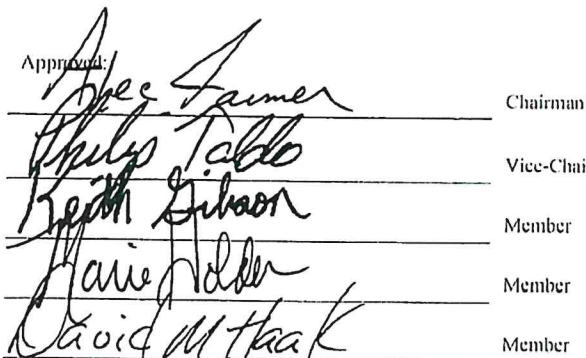 Approved:
Alec Farmer Chairman
Philip Taldo Vice-Chai
Keith Gibson Member
Marie Holder Member
David M Haak Member